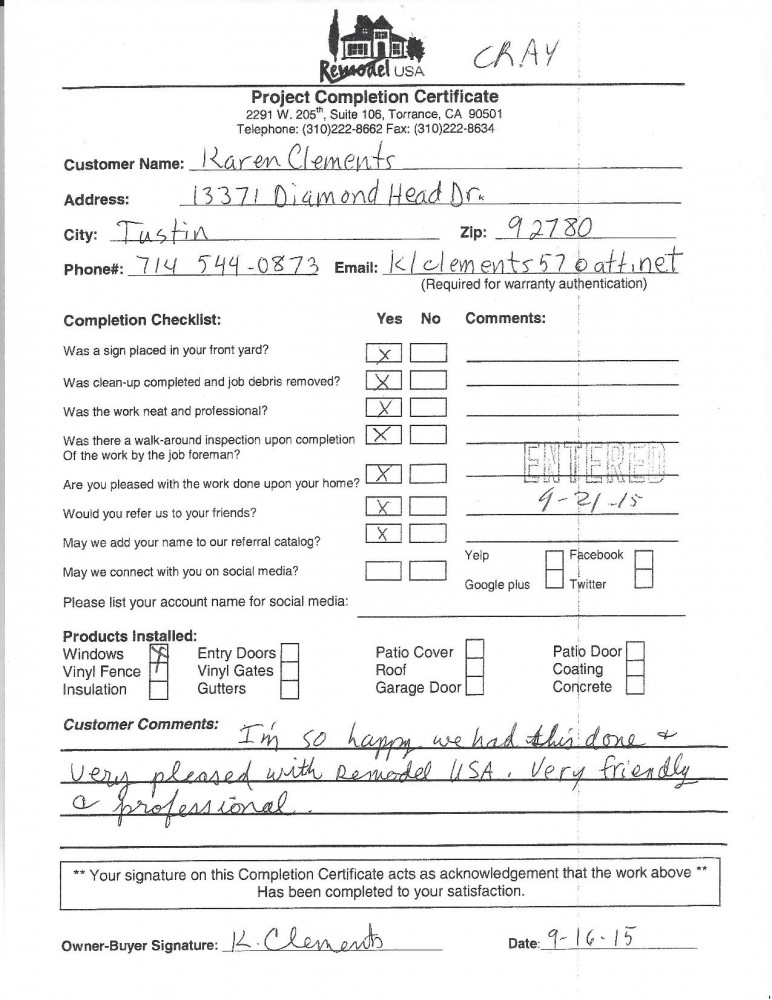 Remodel USA
CRAY
Project Completion Certificate
2291 W. 205th, Suite 106, Torrance, CA 90501
Telephone: (310)222-8662 Fax: (310)222-8634
Customer Name: Karen Clements
Address: 13371 Diamond Head Dr.
City: Tustin Zip: 92780
Phone#: 714 544-0873 Email: klclements57@att.net
(Required for warranty authentication)
Completion Checklist: Yes No Comments:
Was a sign placed in your front yard? X
Was clean-up completed and job debris removed? X
Was the work neat and professional? X
Was there a walk-around inspection upon completion X
Of the work by the job foreman?
ENTERED
Are you pleased with the work done upon your home? X
9-21-15
Would you refer us to your friends? X
May we add your name to our referral catalog? X
Yelp Facebook
May we connect with you on social media?
Google plus Twitter
Please list your account name for social media:
Products Installed:
Windows X Entry Doors Patio Cover Patio Door
Vinyl Fence Vinyl Gates Roof Coating
Insulation Gutters Garage Door Concrete
Customer Comments: I'm so happy we had this done +
very pleased with Remodel USA. Very friendly
& professional.
** Your signature on this Completion Certificate acts as acknowledgement that the work above **
Has been completed to your satisfaction.
Owner-Buyer Signature: K. Clements Date: 9-16-15